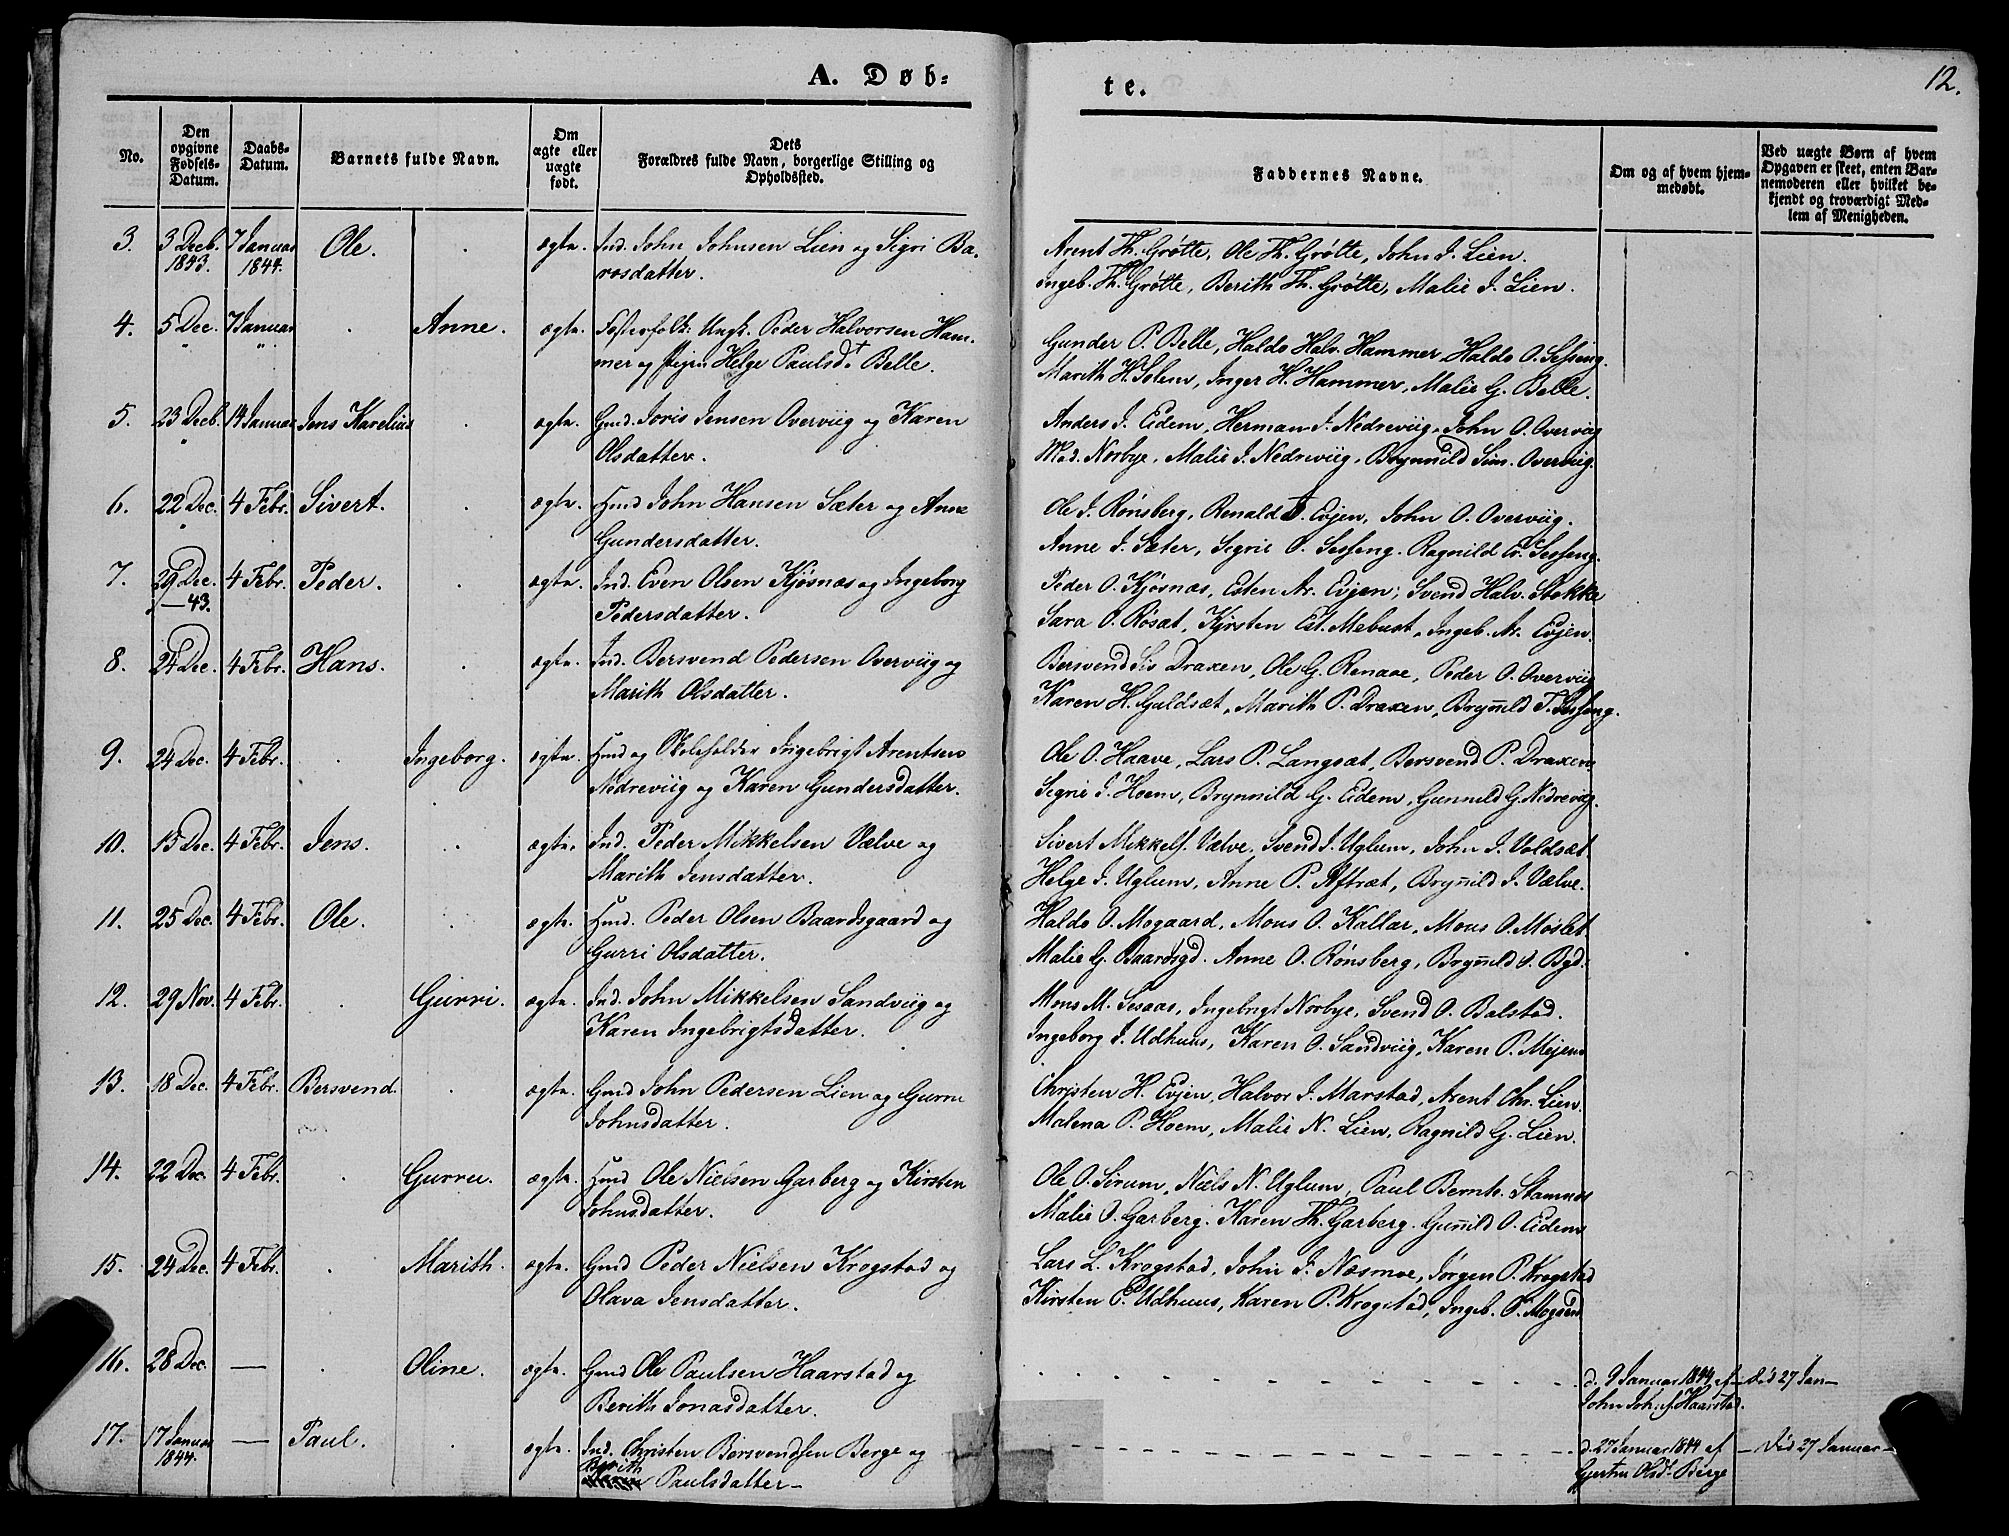 A. Døb-
te.
12.
No.
Den opgivne Fødsels-Datum.
Daabs-Datum.
Barnets fulde Navn.
Om ægte eller uægte født.
Dets Forældres fulde Navn, borgerlige Stilling og Opholdssted.
Faddernes Navne.
Om og af hvem hjemmedøbt.
Ved uægte Børn af hvem Opgaven er skeet, enten Barnemoderen eller hvilket bekjendt og troværdigt Medlem af Menigheden.
3. 3 Decb. 1843. 7 Januar 1844. Ole. ægte. Ind. John Johnsen Lien og Sigri Ba-
rosdatter.
Arent Th. Grøtte, Ole Th. Grøtte, John J. Lien.
Ingeb. Th. Grøtte, Berith Th. Grøtte, Malie J. Lien.
4. 5 Dec. 7 Januar Anne. ægte. Fæsterfolk: Ungk. Peder Halvorsen Ham-
mer og Pigen Helge Paulsdt. Belle.
Gunder P. Belle, Haldo Halv. Hammer, Haldo O. Sesseng.
Marith H. Solem, Inger H. Hammer, Malie G. Belle.
5. 23 Decb. 14 Januar Jens Karelius ægte. Gmd. Joris Jensen Overviig og Karen
Olsdatter.
Anders J. Eidem, Herman J. Nedreviig, John O. Overviig
Mad. Norbye, Malie J. Nedreviig, Brynnild Sim. Overviig.
6. 22 Dec. 4 Febr. Sivert. ægte. Hmd John Hansen Sæter og Anne
Gundersdatter.
Ole J. Rønsberg, Renald Evjen, John O. Overviig.
Anne J. Sæter, Sigrie O. Sesseng. Ragnild Ev. Sesseng.
7. 29 Dec. —43. 4 Febr. Peder. ægte. Ind. Even Olsen Kjøsnæs og Ingeborg
Pedersdatter.
Peder O. Kjøsnæs, Esten Ar. Evjen, Svend Halv. Stokke
Sara O. Røsæt, Kirsten Est. Mebust, Ingeb. Ar. Evjen.
8. 24 Dec. 4 Febr. Hans. ægte. Ind. Bersvend Pedersen Overviig og
Marith Olsdatter.
Bersvend Draxen, Ole G. Renaae, Peder O. Overviig
Karen H. Guldsæt, Marith P. Draxen, Bryn̅ild T. Sesseng.
9. 24 Dec. 4 Febr. Ingeborg. ægte. Hmd og Skoleholder Ingebrigt Arentsen
Nedreviig og Karen Gundersdatter.
Ole O. Haave, Lars P. Langsæt, Bersvend P. Draxen,
Sigrie J. Hoem, Brynnild G. Eidem, Gunnild G. Nedreviig.
10. 15 Dec. 4 Febr. Jens. ægte. Ind. Peder Mikkelsen Vælve og
Marith Jensdatter.
Sivert Mikkels. Vælve, Svend J. Uglum, John J. Voldsæt
Helge J. Uglum, Anne P. Aftræt, Bryn̅ild J. Vælve.
11. 25 Dec. 4 Febr. Ole. ægte. Hmd. Peder Olsen Baardsgaard og
Gurri Olsdatter.
Haldo O. Mogaard, Mons O. Kallar, Mons O. Møslet
Malie G. Baardsgd. Anne O. Rønsberg, Bryn̅ild O. Bgd.
12. 29 Nov. 4 Febr. Gurri. ægte. Ind. John Mikkelsen Sandviig og
Karen Ingebrigtsdatter.
Mons M. Sesaas, Ingebrigt Norbye, Svend O. Balstad.
Ingeborg J. Udhuus, Karen O. Sandviig, Karen P. Mejens
13. 18 Dec. 4 Febr. Bersvend. ægte. Gmd John Pedersen Lien og Gurru
Johnsdatter.
Christen H. Evjen, Halvor J. Marstad, Arent Chr. Lien.
Malena P. Hoem, Malie N. Lien, Ragnild G. Lien.
14. 22 Dec. 4 Febr. Gurru. ægte. Hmd Ole Nielsen Garberg og Kirsten
Johnsdatter.
Ole O. Sirum, Niels N. Uglum, Paul Bernts. Stamnes
Malie O. Garberg. Karen Th. Garberg. Gun̅ild O. Eidem
15. 24 Dec. 4 Febr. Marith. ægte. Gmd Peder Nielsen Krogstad og
Olava Jensdatter.
Lars L. Krogstad, John J. Næsmoe, Jørgen P. Krogstad
Kirsten P. Udhuus, Karen P. Krogstad, Ingeb. P. Mogaard
16. 28 Dec. — Oline. ægte. Gmd Ole Paulsen Haarstad og
Berith Jonasdatter.
d. 9 Januar 1844 af
John Joh.s Haarstad.
— død 27 Jan—
17. 17 Januar 1844. — Paul. ægte. Ind. Christen Bersvendsen Berge og
Berith Paulsdatter—
d. 27 Januar 1844 af
Gjertru Olsdt. Berge
— død 27 Januar —